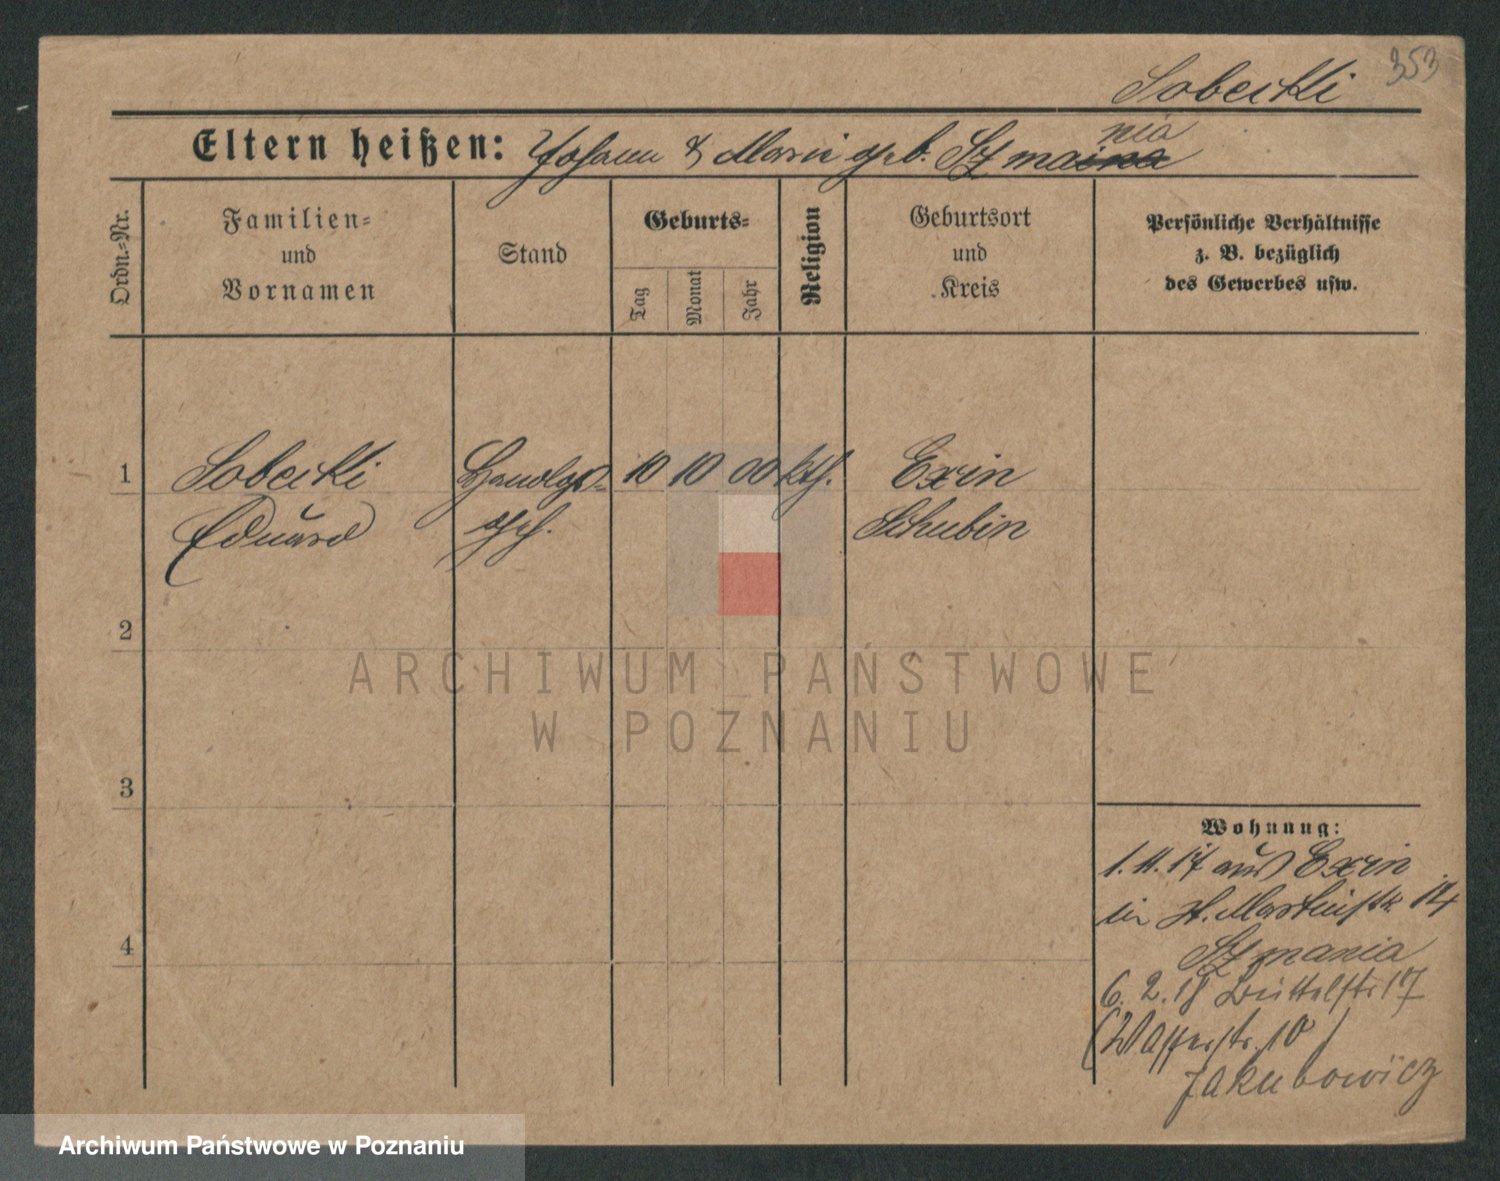 353
Sobecki
Eltern heißen: Johann & Marie geb. Szmaina
nia
Ordn.-Nr.
Familien-
und
Vornamen
Stand
Geburts-
Tag
Monat
Jahr
Religion
Geburtsort
und
Kreis
Persönliche Verhältnisse
z. B. bezüglich
des Gewerbes usw.
1
Sobecki
Eduard
Handlgs-
geh.
10
10
00
kth.
Exin
Schubin
2
3
4
Wohnung:
1.11.17 aus Exin
in St. Martinstr. 14
Szmania
6.2.18 Büttelstr 17
(Wasserstr. 10)
Jakubowicz
ARCHIWUM PAŃSTWOWE
W POZNANIU
Archiwum Państwowe w Poznaniu